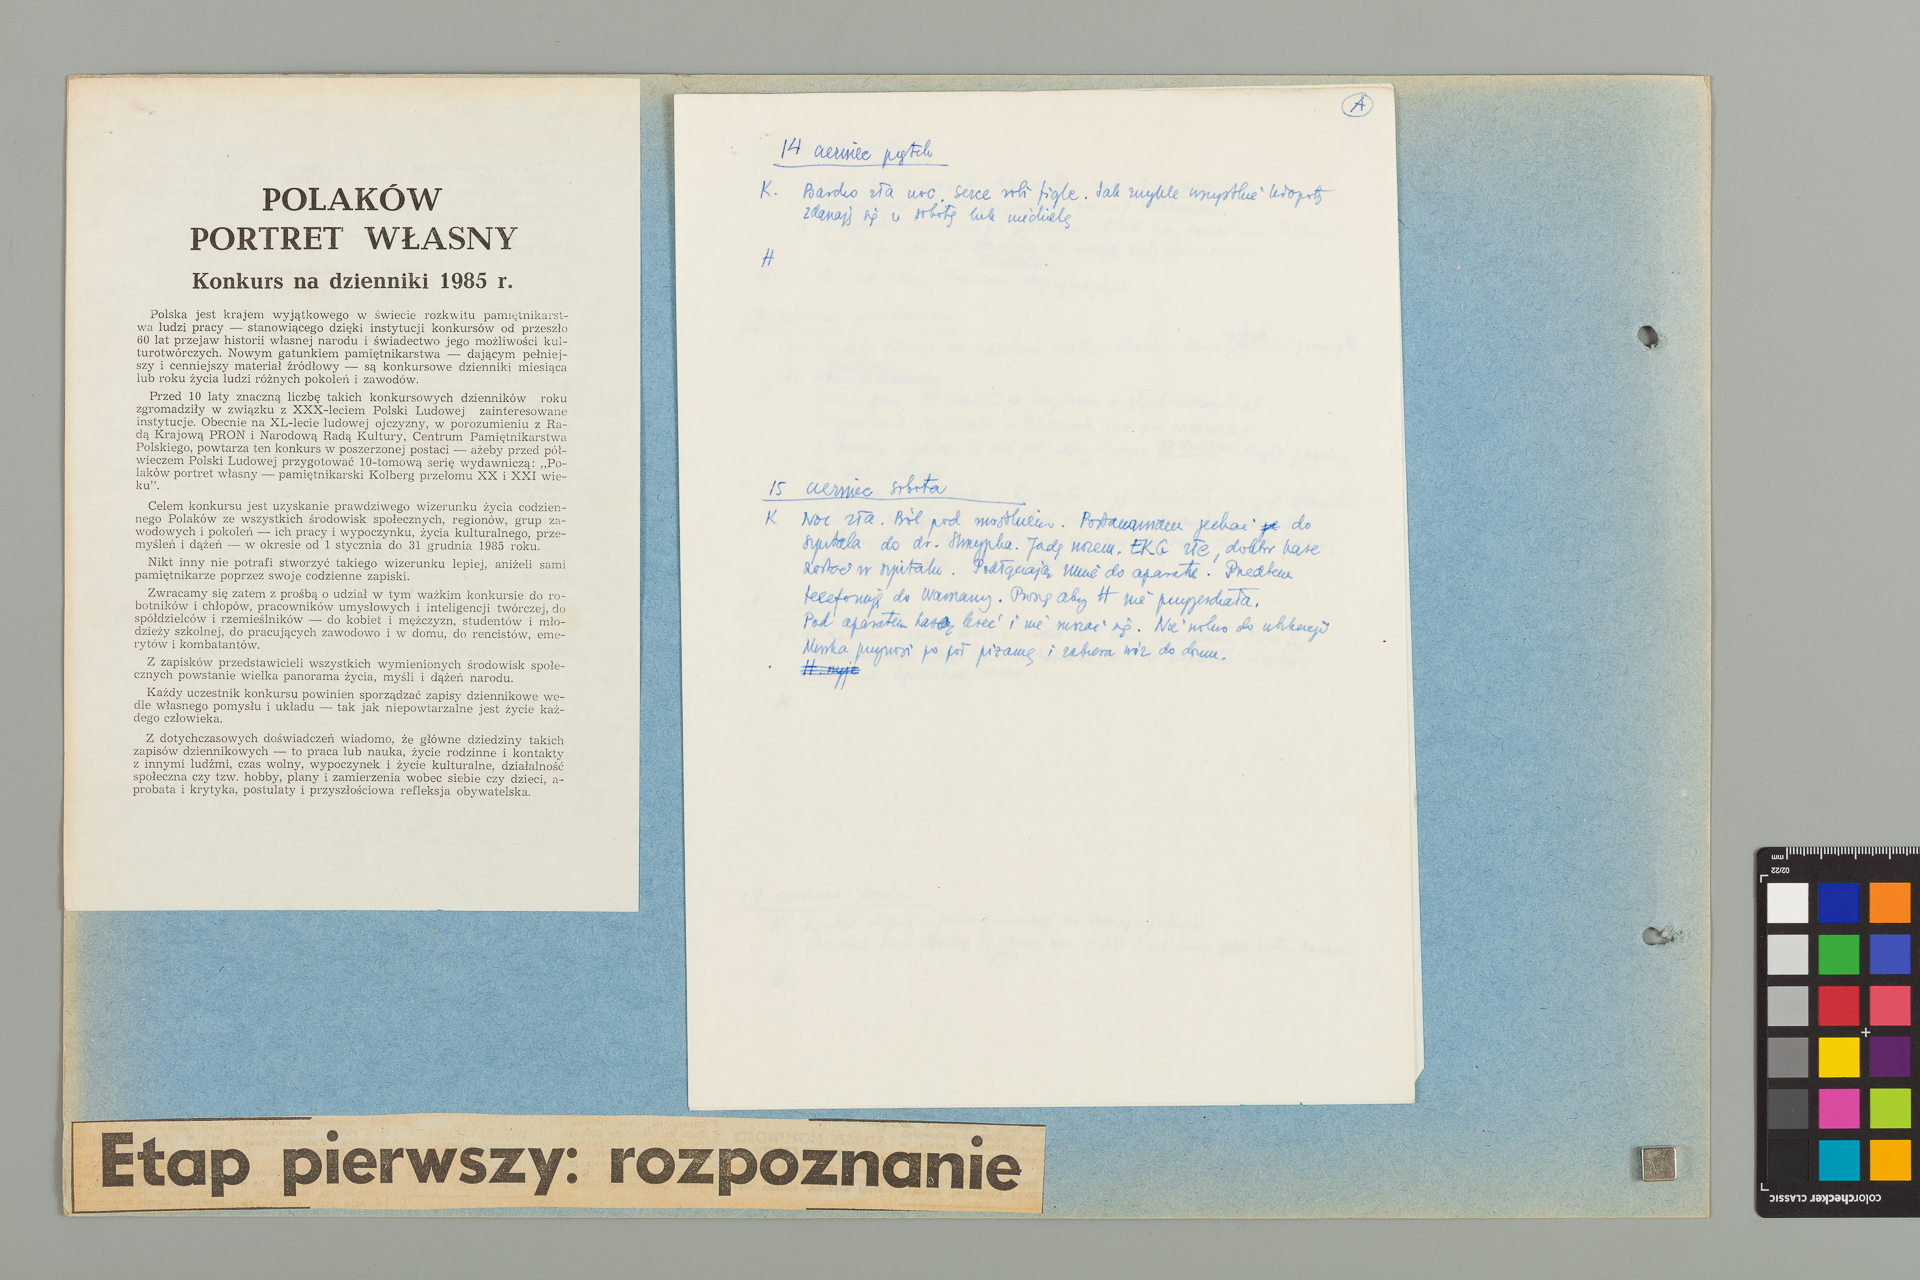 POLAKÓW
PORTRET WŁASNY
Konkurs na dzienniki 1985 r.
Polska jest krajem wyjątkowego w świecie rozkwitu pamiętnikarst-
wa ludzi pracy — stanowiącego dzięki instytucji konkursów od przeszło
60 lat przejaw historii własnej narodu i świadectwo jego możliwości kul-
turotwórczych. Nowym gatunkiem pamiętnikarstwa — dającym pełniej-
szy i cenniejszy materiał źródłowy — są konkursowe dzienniki miesiąca
lub roku życia ludzi różnych pokoleń i zawodów.
Przed 10 laty znaczną liczbę takich konkursowych dzienników roku
zgromadziły w związku z XXX-leciem Polski Ludowej zainteresowane
instytucje. Obecnie na XL-lecie ludowej ojczyzny, w porozumieniu z Ra-
dą Krajową PRON i Narodową Radą Kultury, Centrum Pamiętnikarstwa
Polskiego, powtarza ten konkurs w poszerzonej postaci — ażeby przed pół-
wieczem Polski Ludowej przygotować 10-tomową serię wydawniczą: „Po-
laków portret własny — pamiętnikarski Kolberg przełomu XX i XXI wie-
ku”.
Celem konkursu jest uzyskanie prawdziwego wizerunku życia codzien-
nego Polaków ze wszystkich środowisk społecznych, regionów, grup za-
wodowych i pokoleń — ich pracy i wypoczynku, życia kulturalnego, prze-
myśleń i dążeń — w okresie od 1 stycznia do 31 grudnia 1985 roku.
Nikt inny nie potrafi stworzyć takiego wizerunku lepiej, aniżeli sami
pamiętnikarze poprzez swoje codzienne zapiski.
Zwracamy się zatem z prośbą o udział w tym ważkim konkursie do ro-
botników i chłopów, pracowników umysłowych i inteligencji twórczej, do
spółdzielców i rzemieślników — do kobiet i mężczyzn, studentów i mło-
dzieży szkolnej, do pracujących zawodowo i w domu, do rencistów, eme-
rytów i kombatantów.
Z zapisków przedstawicieli wszystkich wymienionych środowisk społe-
cznych powstanie wielka panorama życia, myśli i dążeń narodu.
Każdy uczestnik konkursu powinien sporządzać zapisy dziennikowe we-
dle własnego pomysłu i układu — tak jak niepowtarzalne jest życie każ-
dego człowieka.
Z dotychczasowych doświadczeń wiadomo, że główne dziedziny takich
zapisów dziennikowych — to praca lub nauka, życie rodzinne i kontakty
z innymi ludźmi, czas wolny, wypoczynek i życie kulturalne, działalność
społeczna czy tzw. hobby, plany i zamierzenia wobec siebie czy dzieci, a-
probata i krytyka, postulaty i przyszłościowa refleksja obywatelska.
A
14 czerwiec piątek
K. Bardzo zła noc. Serce robi figle. Jak zwykle wszystkie kłopoty
zdarzają się w sobotę lub niedzielę
H
15 czerwiec sobota
K Noc zła. Ból pod mostkiem. Postanawiam jechać do
szpitala do dr. Jadę wozem. EKG złe, doktor każe
zostać w szpitalu. Podłączają mnie do aparatu. Przedtem
telefonuję do Warszawy. Proszę aby H nie przyjeżdżała.
Pod aparatem każą leżeć i nie ruszać się. Nie wolno do ubikacji
przynosi po poł piżamę i zabiera wóz do domu.
Etap pierwszy: rozpoznanie
mm
02/22
colorchecker CLASSIC